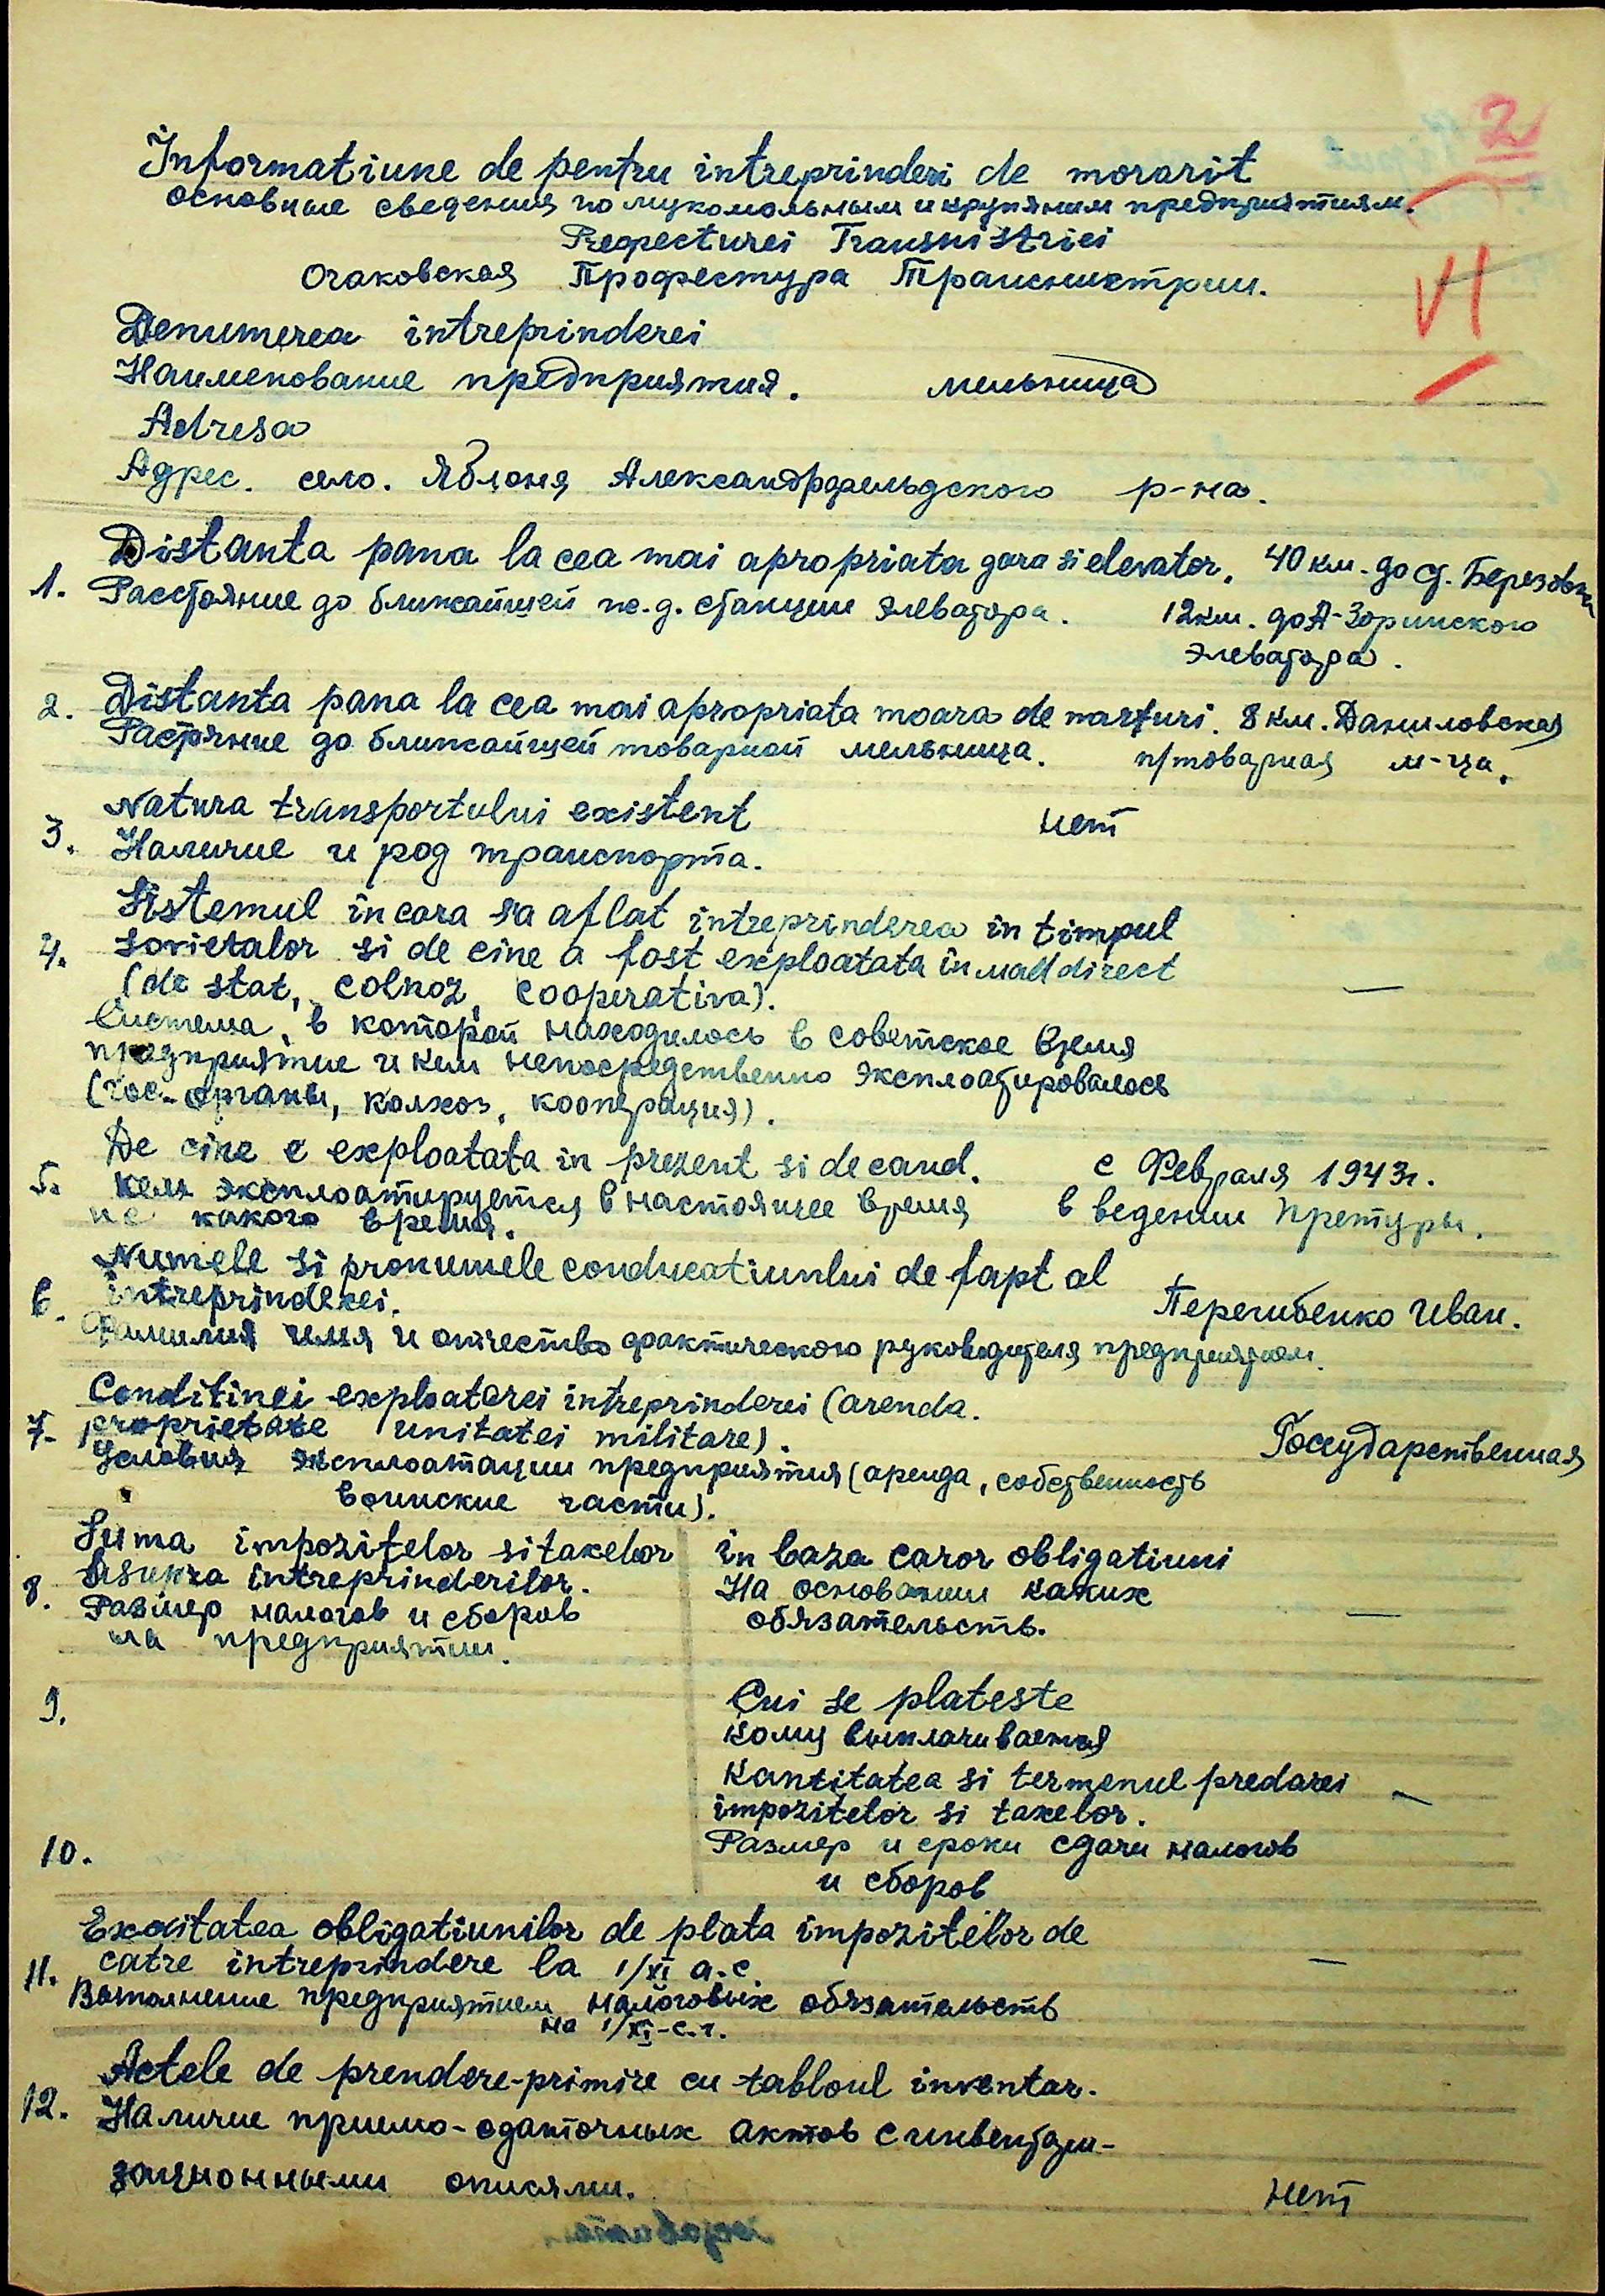 2
Informatiune de pentru intreprinderi de morarit
основные сведения по мукомольным и крупяным предприятиям.
Prefecturei Transnistriei
Очаковская Профестура Транснистрии.
VI
Denumerea intreprinderei
Наименование предприятия. мельница
Adresa
Адрес. село. Яблоня Александрфельдского р-на.
Distanta pana la cea mai apropriata gara si elevator. 40 км. до ст. Березовка
1. Расстояние до ближайшей ж.д. станции элеватора. 12 км. до А-Зоринского
элеватора.
2. Distanta pana la cea mai apropriata moara de marfuri. 8 км. Даниловская
Растряние до ближайщей товарной мельница. п/товарная м-ца.
Natura transportului existent нет
3. Наличие и род транспорта.
Sistemul in cara s'a aflat intreprinderea in timpul
4. sovietalor si de cine a fost exploatata in mod direct
(de stat, colhoz, cooperativa). —
Система, в которой находилось в советское время
предприятие и кем непосредственно эксплоатировалось
(гос-органы, колхоз, кооперация).
De cine e exploatata in prezent si de cand. с Февраля 1943г.
5. кем эксплоатируется в настоящее время в ведении претуры.
и с какого времия.
Numele si pronumele conducatiunlui de fapt al
6. intreprinderei. Перегибенко Иван.
Фамилия имя и отчество фактического руководителя предприятием.
Conditinei exploatarei intreprinderei (arenda.
7. proprietate unitatei militare). Государственная
Условия эксплоатации предприятия (аренда, собственность
воинские части).
Suma impozitelor si taxelor in baza caror obligatiuni
8. asupra intreprinderilor. На основании каких
Размер налогов и сборов обязательств. —
на предприятии.
9. Cui se plateste
Кому выплачивается
Kantitatea si termenul predarei —
impozitelor si taxelor.
10. Размер и сроки сдачи налогов
и сборов
Exacitatea obligatiunilor de plata impozitelor de
11. catre intreprindere la 1/XI a.c. —
Выполнение предприятием налоговых обязательств
на 1/XI-с.г.
Actele de prendere-primire cu tabloul inventar.
12. Наличие приемо-сдаточных актов с инвентари-
зационными описями. нет